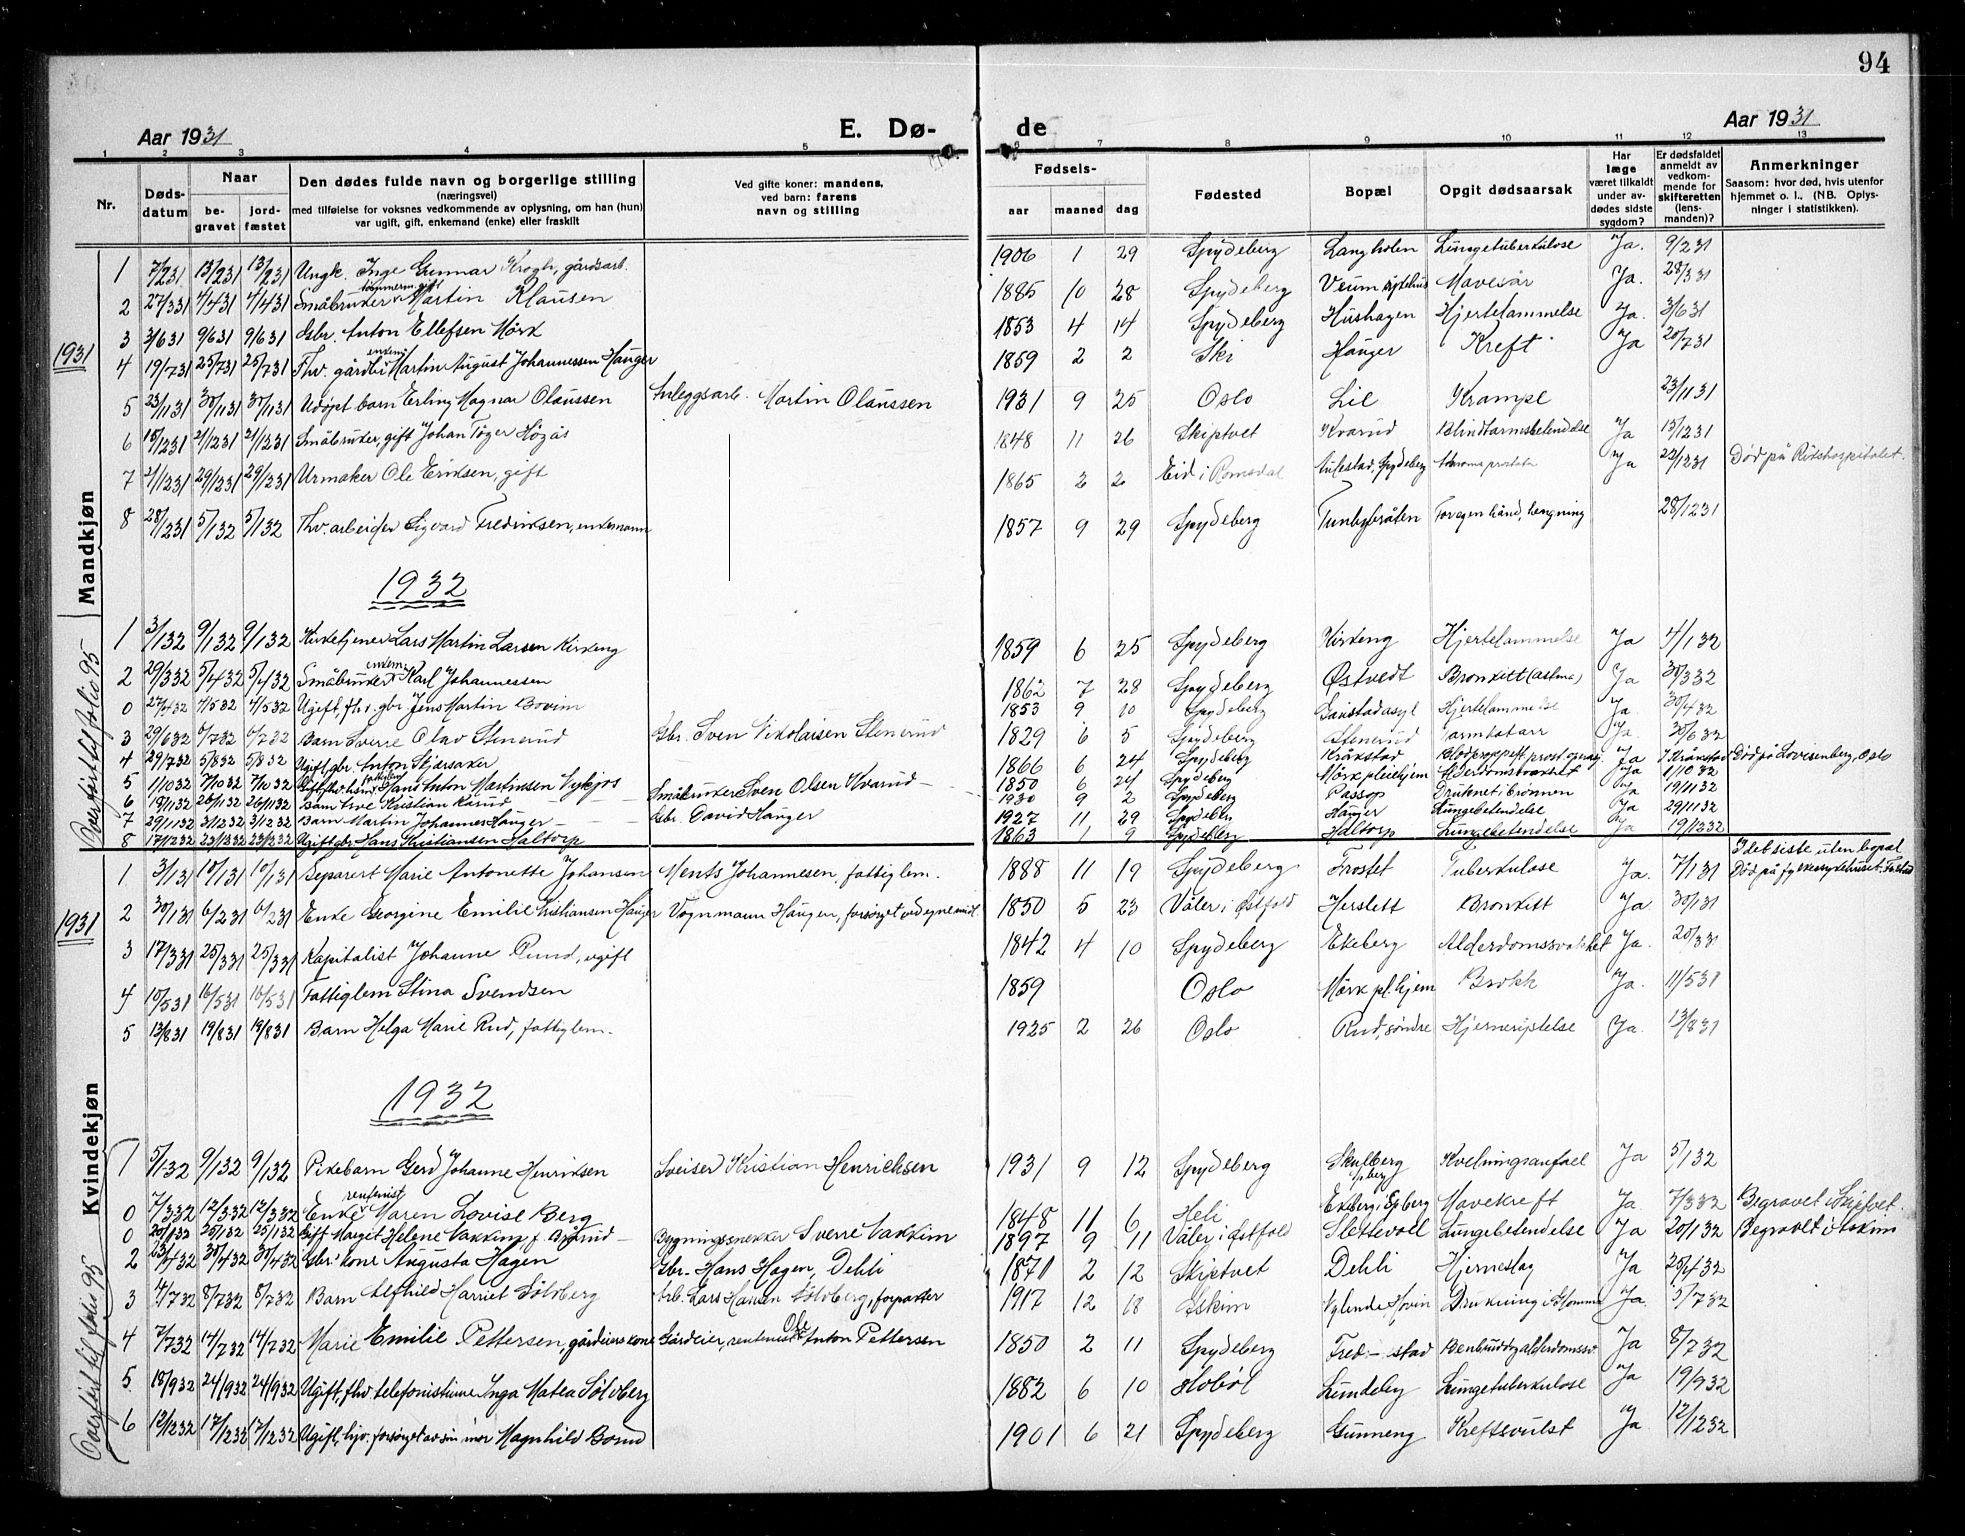 94
Aar 1931
E. Dø-
de
Aar 1931
1 2 3 4 5 6 7 8 9 10 11 12 13
Nr.
Døds-datum
Naar
be-gravet
jord-fæstet
Den dødes fulde navn og borgerlige stilling
(næringsvei)
med tilføielse for voksnes vedkommende av oplysning, om han (hun)
var ugift, gift, enkemand (enke) eller fraskilt
Ved gifte koner: mandens,
ved barn: farens
navn og stilling
Fødsels-
aar maaned dag
Fødested
Bopæl
Opgit dødsaarsak
Har læge været tilkaldt under av-dødes sidste sygdom?
Er dødsfaldet anmeldt av vedkom-mende for skifteretten (lens-manden)?
Anmerkninger
Saasom: hvor død, hvis utenfor hjemmet o. l., (NB. Oplys-ninger i statistikken).
1931
Mandkjøn
1 7/2 31 13/2 31 13/2 31 Ungk. Inge Gunnar Krogh, gårdsarb. 1906 1 29 Spydeberg Langholen Lungetuberkulose Ja. 9/2 31
2 27/3 31 4/4 31 4/4 31 Småbruker tømmerm. gift Martin Klausen 1885 10 28 Spydeberg Veum sykehus Mavesår Ja. 28/3 31
3 3/6 31 9/6 31 9/6 31 Gbr. Anton Ellefsen Mørk 1853 4 14 Spydeberg Hushagen Hjertelammelse Ja. 3/6 31
4 19/7 31 25/7 31 25/7 31 Fhv. gårdbr. enkem. Martin August Johannessen Hauger 1859 2 2 Ski Hauger Kreft Ja 20/7 31
5 23/11 31 30/11 31 30/11 31 Udøpt barn Erling Magnar Olaussen Anleggsarb. Martin Olaussen 1931 9 25 Oslo Lil Krampe 23/11 31
6 15/12 31 21/12 31 21/12 31 Småbruker, gift Johan Tøger Høgås 1848 11 26 Skiptvet Kvarud Blindtarmsbetendelse Ja 15/12 31
7 21/12 31 29/12 31 29/12 31 Urmaker Ole Eriksen, gift 1865 2 2 Eid i Romsdal Spydeberg prostata Ja 22/12 31 Død på Rikshospitalet.
8 28/12 31 5/1 32 5/1 32 Fhv. arbeider Sigvard Fredriksen, enkemann 1857 9 29 Spydeberg Tunbybråten For egen hånd, hengning 28/12 31
1932
1 3/1 32 9/1 32 9/1 32 Kirketjener Lars Martin Larsen Kirkeng 1859 6 25 Spydeberg Kirkeng Hjertelammelse Ja 4/1 32
2 29/3 32 5/4 32 5/4 32 Småbruker enkem. Karl Johannessen 1862 7 28 Spydeberg Østvedt Bronkitt (astma) Ja 30/3 32
0 27/4 32 4/5 32 4/5 32 Ugift, fhv. gbr. Jens Martin Bovim 1853 9 10 Spydeberg Gaustad asyl Hjertelammelse Ja. 30/4 32
3 29/6 32 6/7 32 6/7 32 Barn Sverre Olav Stenerud Gbr. Sven Nikolaisen Stenerud 1829 6 5 Spydeberg Stenerud Tarmkatarr Ja. 30/6 32
4 29/7 32 5/8 32 5/8 32 Ugift, gbr. Anton Skjærsaker 1866 6 24 Spydeberg Kråkstad Ja I Kråkstad Død på Lovisenberg, Oslo
5 1/10 32 7/10 32 7/10 32 Hans Anton Martinsen 1850 6 24 Spydeberg Mørk pleiehjem Alderdomssvakhet Ja 1/10 32
6 19/11 32 26/11 32 26/11 32 Barn Kristian Kvarud Småbruker Sven Olsen Kvarud 1930 9 2 Spydeberg Passop Druknet i brønnen Ja 19/11 32
7 29/11 32 3/12 32 3/12 32 Barn Martin Johannes Hauger Gbr. David Hauger 1927 11 29 Spydeberg Hauger Lungebetendelse Ja 29/11 32
8 17/12 32 23/12 32 23/12 32 Ugift gbr. Hans Kristiansen Haltorp 1863 1 9 Spydeberg Haltorp Lungebetendelse Ja 19/12 32
Overført til folio 95
1931
Kvindekjøn
1 3/1 31 10/1 31 10/1 31 Separert Marie Antonette Johansen Ments Johannesen, fattiglem. 1888 11 19 Spydeberg Frostet Tuberkulose Ja. 7/1 31 I det siste uten bopæl Død på fylkessykehuset,
2 30/1 31 6/2 31 6/2 31 Enke Georgine Emilie Kristiansen Hauger Vognmann Haugen, forsørget ved egne midl. 1850 5 23 Våler i Østfold Herslett Bronkitt Ja 30/1 31
3 17/3 31 25/3 31 25/3 31 Kapitalist Johanne Rund, ugift 1842 4 10 Spydeberg Ekeberg Alderdomssvakhet Ja. 20/3 31
4 10/5 31 16/5 31 16/5 31 Fattiglem Stina Svendsen 1859 Oslo Mørk pl. hjem Brokk Ja. 11/5 31
5 13/8 31 19/8 31 19/8 31 Barn Helga Marie Rud, fattiglem. 1925 2 26 Oslo Rud, søndre Hjernerystelse Ja. 13/8 31
1932
1 5/1 32 9/1 32 9/1 32 Pikebarn Gerd Johanne Henriksen Sveiser Kristian Henrichsen 1931 9 12 Spydeberg Skulberg Spberg Kvelningsanfael Ja 5/1 32
0 7/3 32 12/3 32 12/3 32 Enke rentenist Maren Lovise Berg 1848 11 6 Heli Ekeberg i Spberg Mavekreft Ja. 7/3 32 Begravet i Skiptvet.
0 20/1 32 25/1 32 25/1 32 Gift Margit Helene Vakkim f. Bjørud Bygningssnekker Sverre Vakkim 1897 9 11 Våler i Østfold Slettevoll Lungebetendelse Ja 20/1 32 Begravet i Askim
2 23/4 32 30/4 32 30/4 32 Gbr. kone Augusta Hagen Gbr. Hans Hagen, Dehli 1871 2 12 Skiptvet Dehli Hjerneslag Ja 25/4 32
3 4/7 32 8/7 32 8/7 32 Barn Alfhild Harriet Sølvberg Arb. Lars Hansen Sølvberg, forpakter 1917 12 18 Askim Nylende, Hovin Drukning i Glomma Ja. 5/7 32
4 7/7 32 14/7 32 14/7 32 Marie Emilie Pettersen, gårdeierskone Gårdeier, rentenist Ole Anton Pettersen 1850 2 11 Spydeberg Fred-stad Benbrudd, alderdomssv. Ja 8/7 32
5 18/9 32 24/9 32 24/9 32 Ugift, fhv telefonistinne Inga Matea Sølvberg 1882 6 10 Hobøl Lundeby Lungetuberkulose Ja 19/9 32
6 12/12 32 17/12 32 17/12 32 Ugift, hjv. forsørget av sin mor Magnhild Bomd 1901 6 21 Spydeberg Gunneng Kreftsvulst Ja 12/12 32
Overført til folio 95